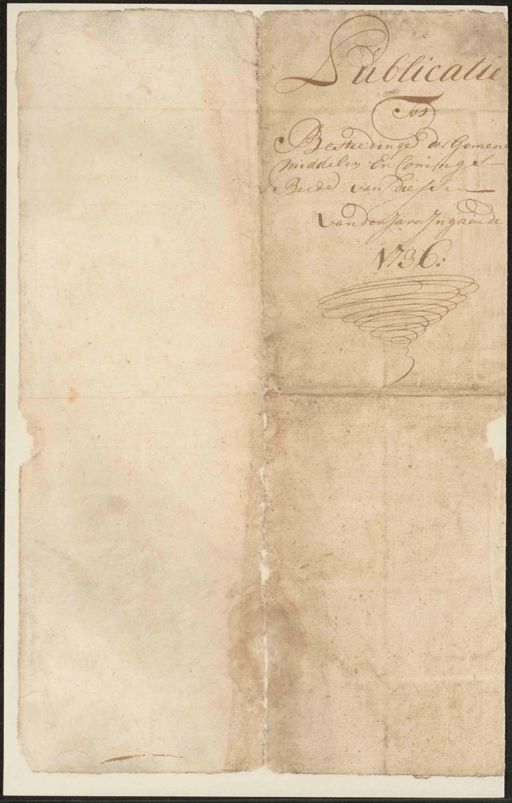 Publicatie
Tot
Bestedinge der Gemene
middelen En Coninx
Beede van Diessen
van den Jare Ingaende
1736: